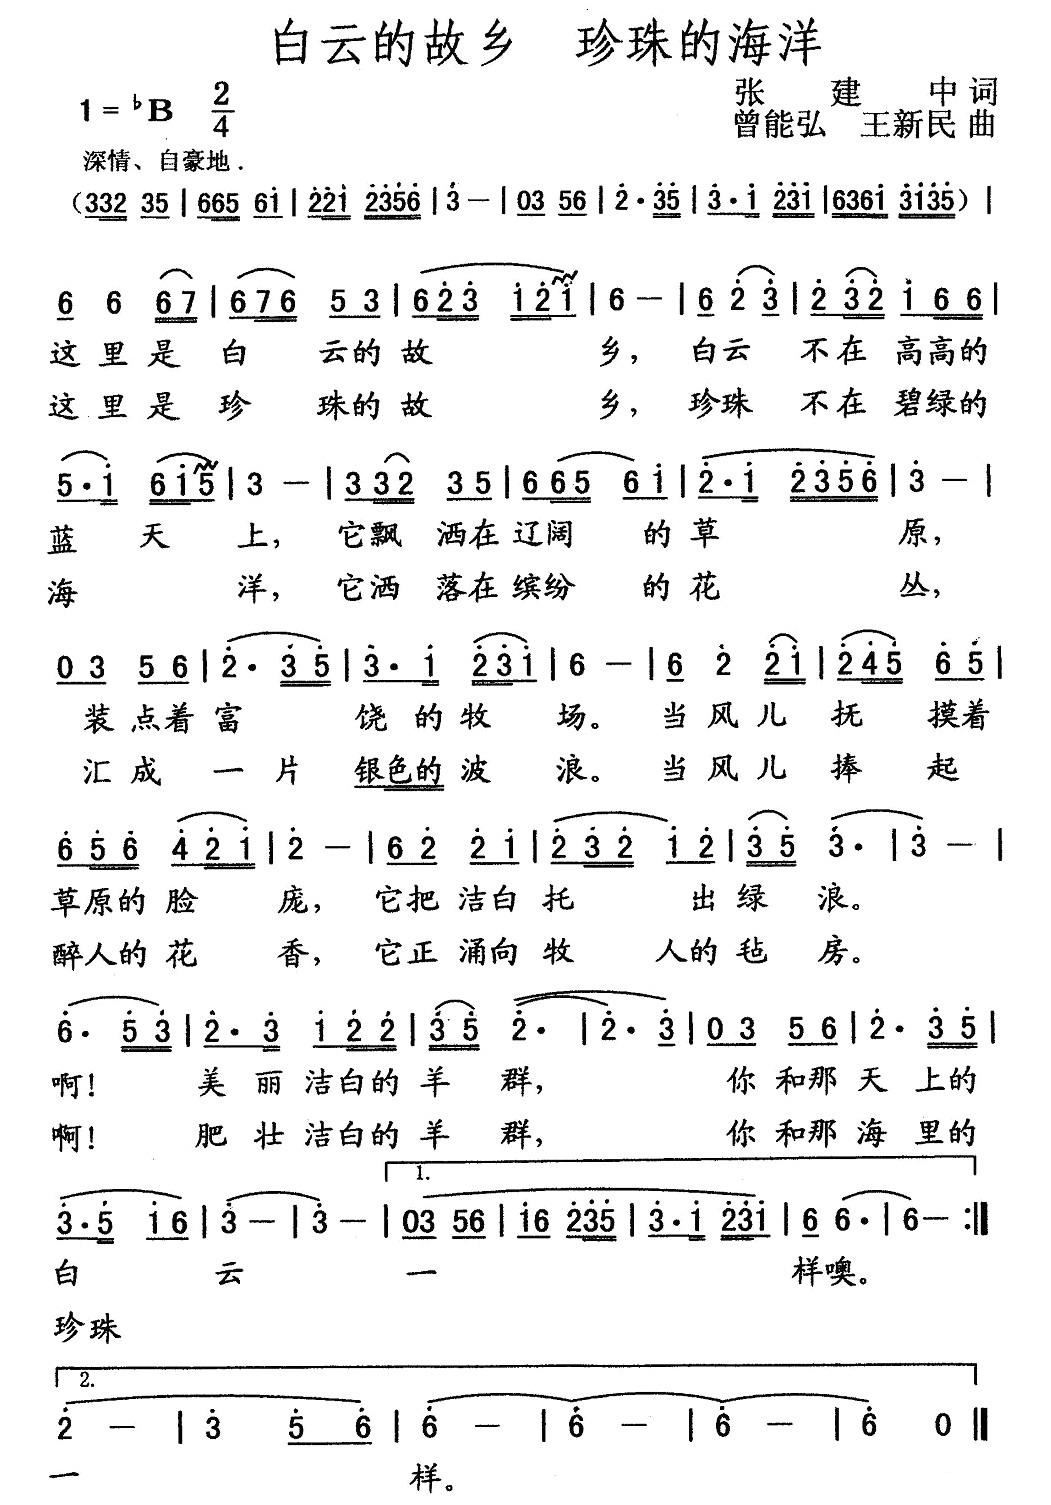 白云的故乡 珍珠的海洋
张建中词
1=♭B 2/4
曾能弘 王新民曲
深情、自豪地.
(332 35 | 665 61 | 221 2356 | 3 – | 03 56 | 2·35 | 3·1 231 | 6361 3135) |
6 6 67 | 676 53 | 623 121 | 6 – | 6 2 3 | 2 32 1 66 |
这里是白云的故乡, 白云不在高高的
这里是珍珠的故乡, 珍珠不在碧绿的
5·1 615 | 3 – | 332 35 | 665 61 | 2·1 2356 | 3 – |
蓝天上, 它飘洒在辽阔的草原,
海洋, 它洒落在缤纷的花丛,
03 56 | 2·35 | 3·1 231 | 6 – | 6 2 21 | 245 65 |
装点着富饶的牧场。当风儿抚摸着
汇成一片银色的波浪。当风儿捧起
656 421 | 2 – | 62 21 | 232 12 | 35 3· | 3 – |
草原的脸庞, 它把洁白托出绿浪。
醉人的花香, 它正涌向牧人的毡房。
6·53 | 2·3 122 | 35 2· | 2·3 | 03 56 | 2·35 |
啊! 美丽洁白的羊群, 你和那天上的
啊! 肥壮洁白的羊群, 你和那海里的
1.
3·5 16 | 3 – | 3 – | 03 56 | 16 235 | 3·1 231 | 6 6· | 6 – :‖
白云一样噢。
珍珠
2.
2 – | 3 5 6 | 6 – | 6 – | 6 – | 6 0 ‖
一样。